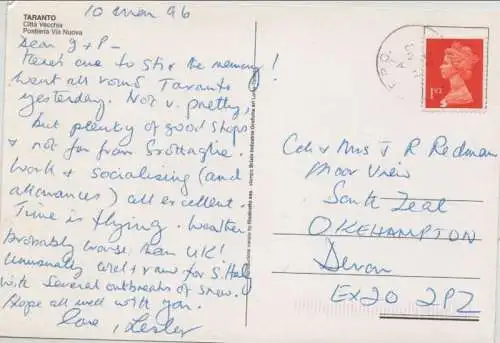 10 Mar 96
TARANTO
Città Vecchia
Postierla Via Nuova
Dear J + P -
Here's one to stir the memory!
Went all round Taranto
yesterday. Not v. pretty,
but plenty of good shops
+ not far from Grottaglie.
Work + socialising (and
allowances) all excellent.
Time is flying. Weather
probably worse than UK!
Unusually cold + raw for S. Italy
with several outbreaks of snow.
Hope all well with you.
Love, Lesley
1ST
Col + Mrs J R Redman
Moor View
South Zeal
OKEHAMPTON
Devon
EX20 2PZ